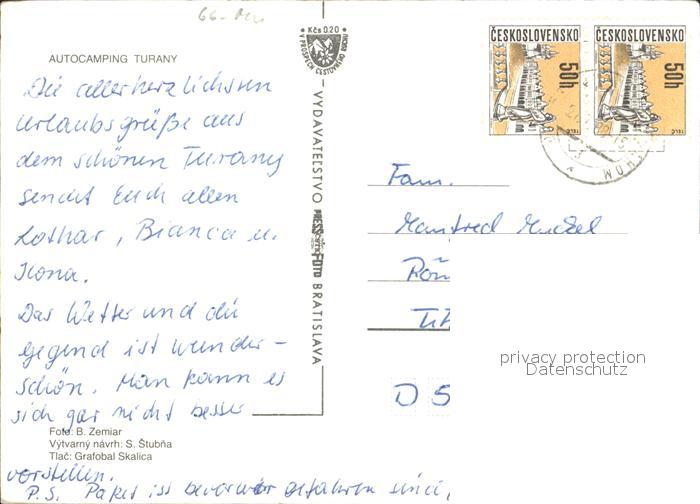 66-
Kčs 0,20
V PROSPECH CESTOVNÉHO RUCHU
AUTOCAMPING TURANY
Die allerherzlichsten
Urlaubsgrüße aus
dem schönen Turany
sendet Euch allen
Lothar, Bianca u.
Ilona.
Das Wetter und die
Gegend ist wunder-
schön. Man kann es
sich gar nicht besser
vorstellen.
P.S. Paket ist bevor wir gefahren sind,
Foto: B. Zemiar
Výtvarný návrh: S. Štubňa
Tlač: Grafobal Skalica
VYDAVATEĽSTVO PRESSFOTO BRATISLAVA
ČESKOSLOVENSKO
50h
TELČ
ČESKOSLOVENSKO
50h
TELČ
Fam.
Manfred
D
privacy protection
Datenschutz